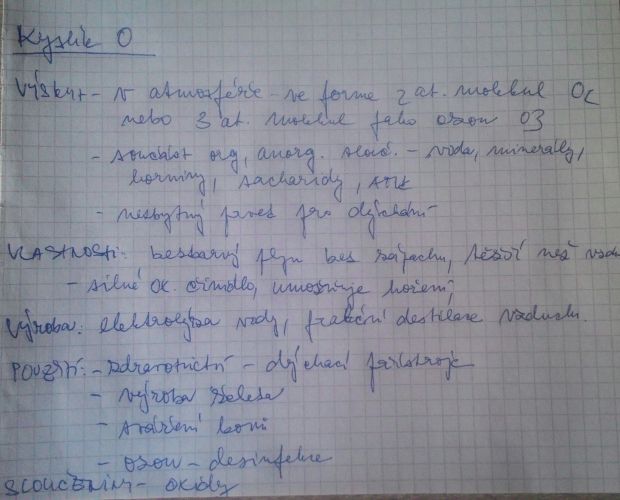 Kyslík O
Výskyt - v atmosféře - ve formě 2 at. molekul O2
nebo 3 at. molekul jako ozon O3
- součást org, anorg. slouč. - voda, minerály,
horniny, sacharidy, atd
- nezbytný pro dýchání
VLASTNOSTI: bezbarvý plyn bez zápachu, těžší než vzdu
- silné ox. činidlo, umožňuje hoření,
Výroba: elektrolýza vody, frakční destilace vzduchu.
POUŽITÍ: - zdravotnictví - dýchací přístroje
- výroba železa
- sváření kovů
- ozon - desinfekce
SLOUČENINY - oxidy